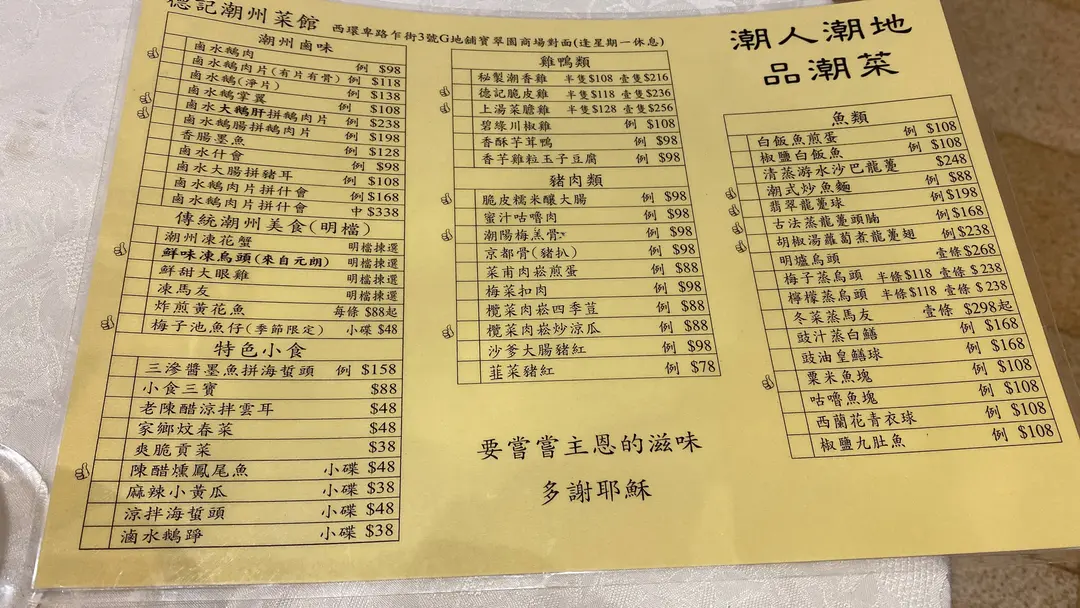 德記潮州菜館 西環卑路乍街3號G地舖寶翠園商場對面(逢星期一休息)
潮州鹵味
鹵水鵝肉 例 $98
鹵水鵝肉片(有片有骨) 例 $118
鹵水鵝(淨片) 例 $138
鹵水鵝掌翼 例 $108
鹵水大鵝肝拼鵝肉片 例 $238
鹵水鵝腸拼鵝肉片 例 $198
香腸墨魚 例 $128
鹵水什會 例 $98
鹵水大腸拼豬耳 例 $108
鹵水鵝肉片拼什會 例 $168
鹵水鵝肉片拼什會 中 $338
傳統潮州美食(明檔)
潮州凍花蟹 明檔揀選
鮮味凍烏頭(來自元朗) 明檔揀選
鮮甜大眼雞 明檔揀選
凍馬友 明檔揀選
炸煎黃花魚 每條 $88起
梅子池魚仔(季節限定) 小碟 $48
特色小食
三滲醬墨魚拼海蜇頭 例 $158
小食三寶 $88
老陳醋涼拌雲耳 $48
家鄉炆春菜 $48
爽脆貢菜 $38
陳醋燻鳳尾魚 小碟 $48
麻辣小黃瓜 小碟 $38
涼拌海蜇頭 小碟 $48
滷水鵝踭 小碟 $38
雞鴨類
秘製潮香雞 半隻$108 壹隻$216
德記脆皮雞 半隻$118 壹隻$236
上湯菜膽雞 半隻$128 壹隻$256
碧綠川椒雞 例 $108
香酥芋茸鴨 例 $98
香芋雞粒玉子豆腐 例 $98
豬肉類
脆皮糯米釀大腸 例 $98
蜜汁咕嚕肉 例 $98
潮陽梅羔骨 例 $98
京都骨(豬扒) 例 $98
菜甫肉崧煎蛋 例 $88
梅菜扣肉 例 $98
欖菜肉崧四季荳 例 $88
欖菜肉崧炒涼瓜 例 $88
沙爹大腸豬紅 例 $98
韮菜豬紅 例 $78
要嘗嘗主恩的滋味
多謝耶穌
潮人潮地
品潮菜
魚類
白飯魚煎蛋 例 $108
椒鹽白飯魚 例 $108
清蒸游水沙巴龍躉 $248
潮式炒魚麵 例 $88
翡翠龍躉球 例$198
古法蒸龍躉頭腩 例$168
胡椒湯蘿蔔煮龍躉翅 例$238
明爐烏頭 壹條$268
梅子蒸烏頭 半條$118 壹條$238
檸檬蒸烏頭 半條$118 壹條$238
冬菜蒸馬友 壹條 $298起
豉汁蒸白鱔 例 $168
豉油皇鱔球 例 $168
粟米魚塊 例 $108
咕嚕魚塊 例 $108
西蘭花青衣球 例 $108
椒鹽九肚魚 例 $108